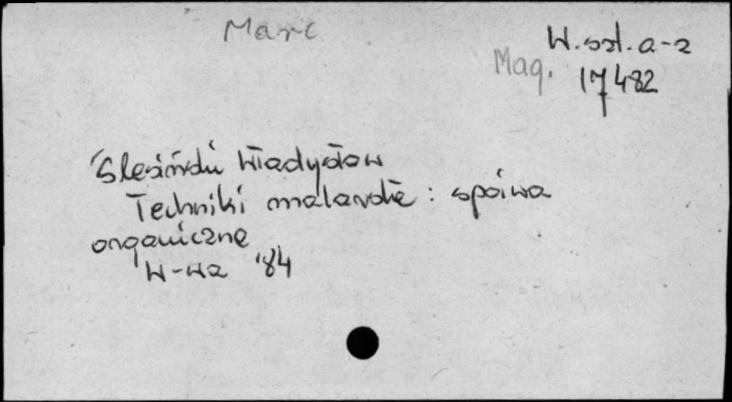 Marc
W.szt. a-z
Mag. 17482
Ślesiński Władysław
Techniki malarskie : spoiwa
organiczne
W-wa '84